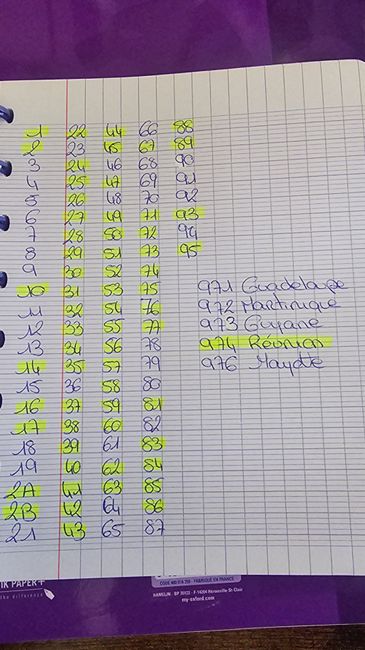 1 22 44 66 88
2 23 45 67 89
3 24 46 68 90
4 25 47 69 91
5 26 48 70 92
6 27 49 71 93
7 28 50 72 94
8 29 51 73 95
9 30 52 74
10 31 53 75 971 Guadeloupe
11 32 54 76 972 Martinique
12 33 55 77 973 Guyane
13 34 56 78 974 Réunion
14 35 57 79 976 Mayotte
15 36 58 80
16 37 59 81
17 38 60 82
18 39 61 83
19 40 62 84
2A 41 63 85
2B 42 64 86
21 43 65 87
PAPER+
the difference
FABRIQUÉ EN FRANCE
HAMELIN - BP - Hérouville-St-Clair
my-oxford.com